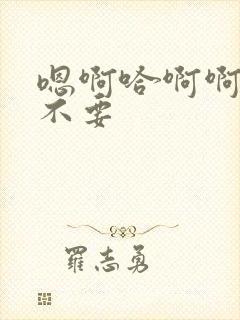 嗯啊哈啊啊
不要
罗志勇